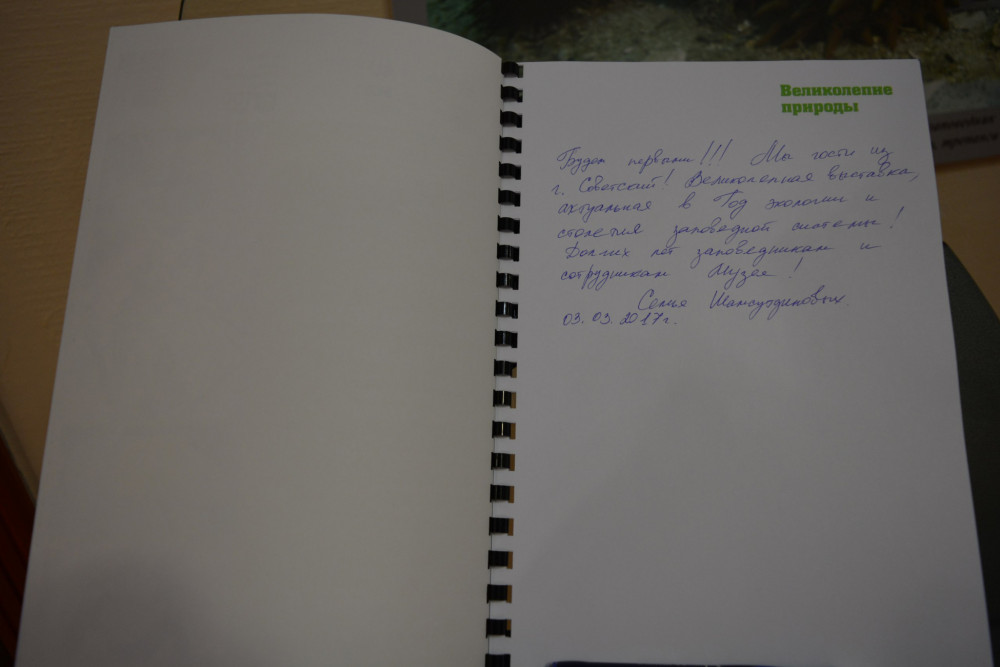 Великолепие
природы
Будем первыми!!! Мы гости из
г. Советский! Великолепная выставка,
актуальная в Год экологии и
столетия заповедной системы!
Долгих лет заповедникам и
сотрудникам Музея!
Семья
03.03.2017г.